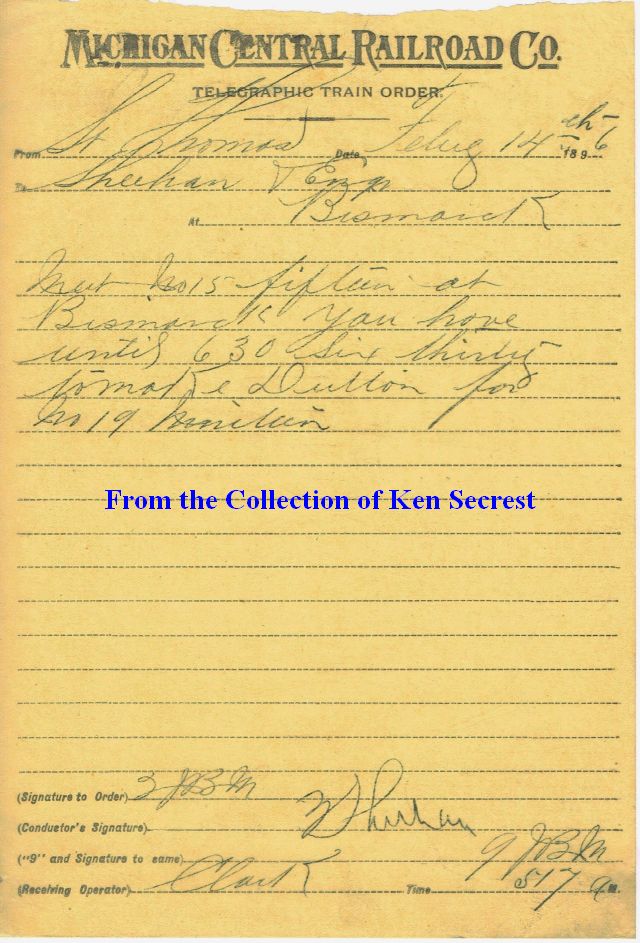 MICHIGAN CENTRAL RAILROAD CO.
TELEGRAPHIC TRAIN ORDER.
From St Thomas Date Feby 14th 1896
To Sheehan & Eng
At Bismarck
Meet No 15 fifteen at
Bismarck You have
until 630 Six thirty
to make Dutton for
No 19 Nineteen
From the Collection of Ken Secrest
(Signature to Order) 3 JBM
(Conductor's Signature) Sheehan
("9" and Signature to same) 9 JBM
(Receiving Operator) Clark Time 517 a m.